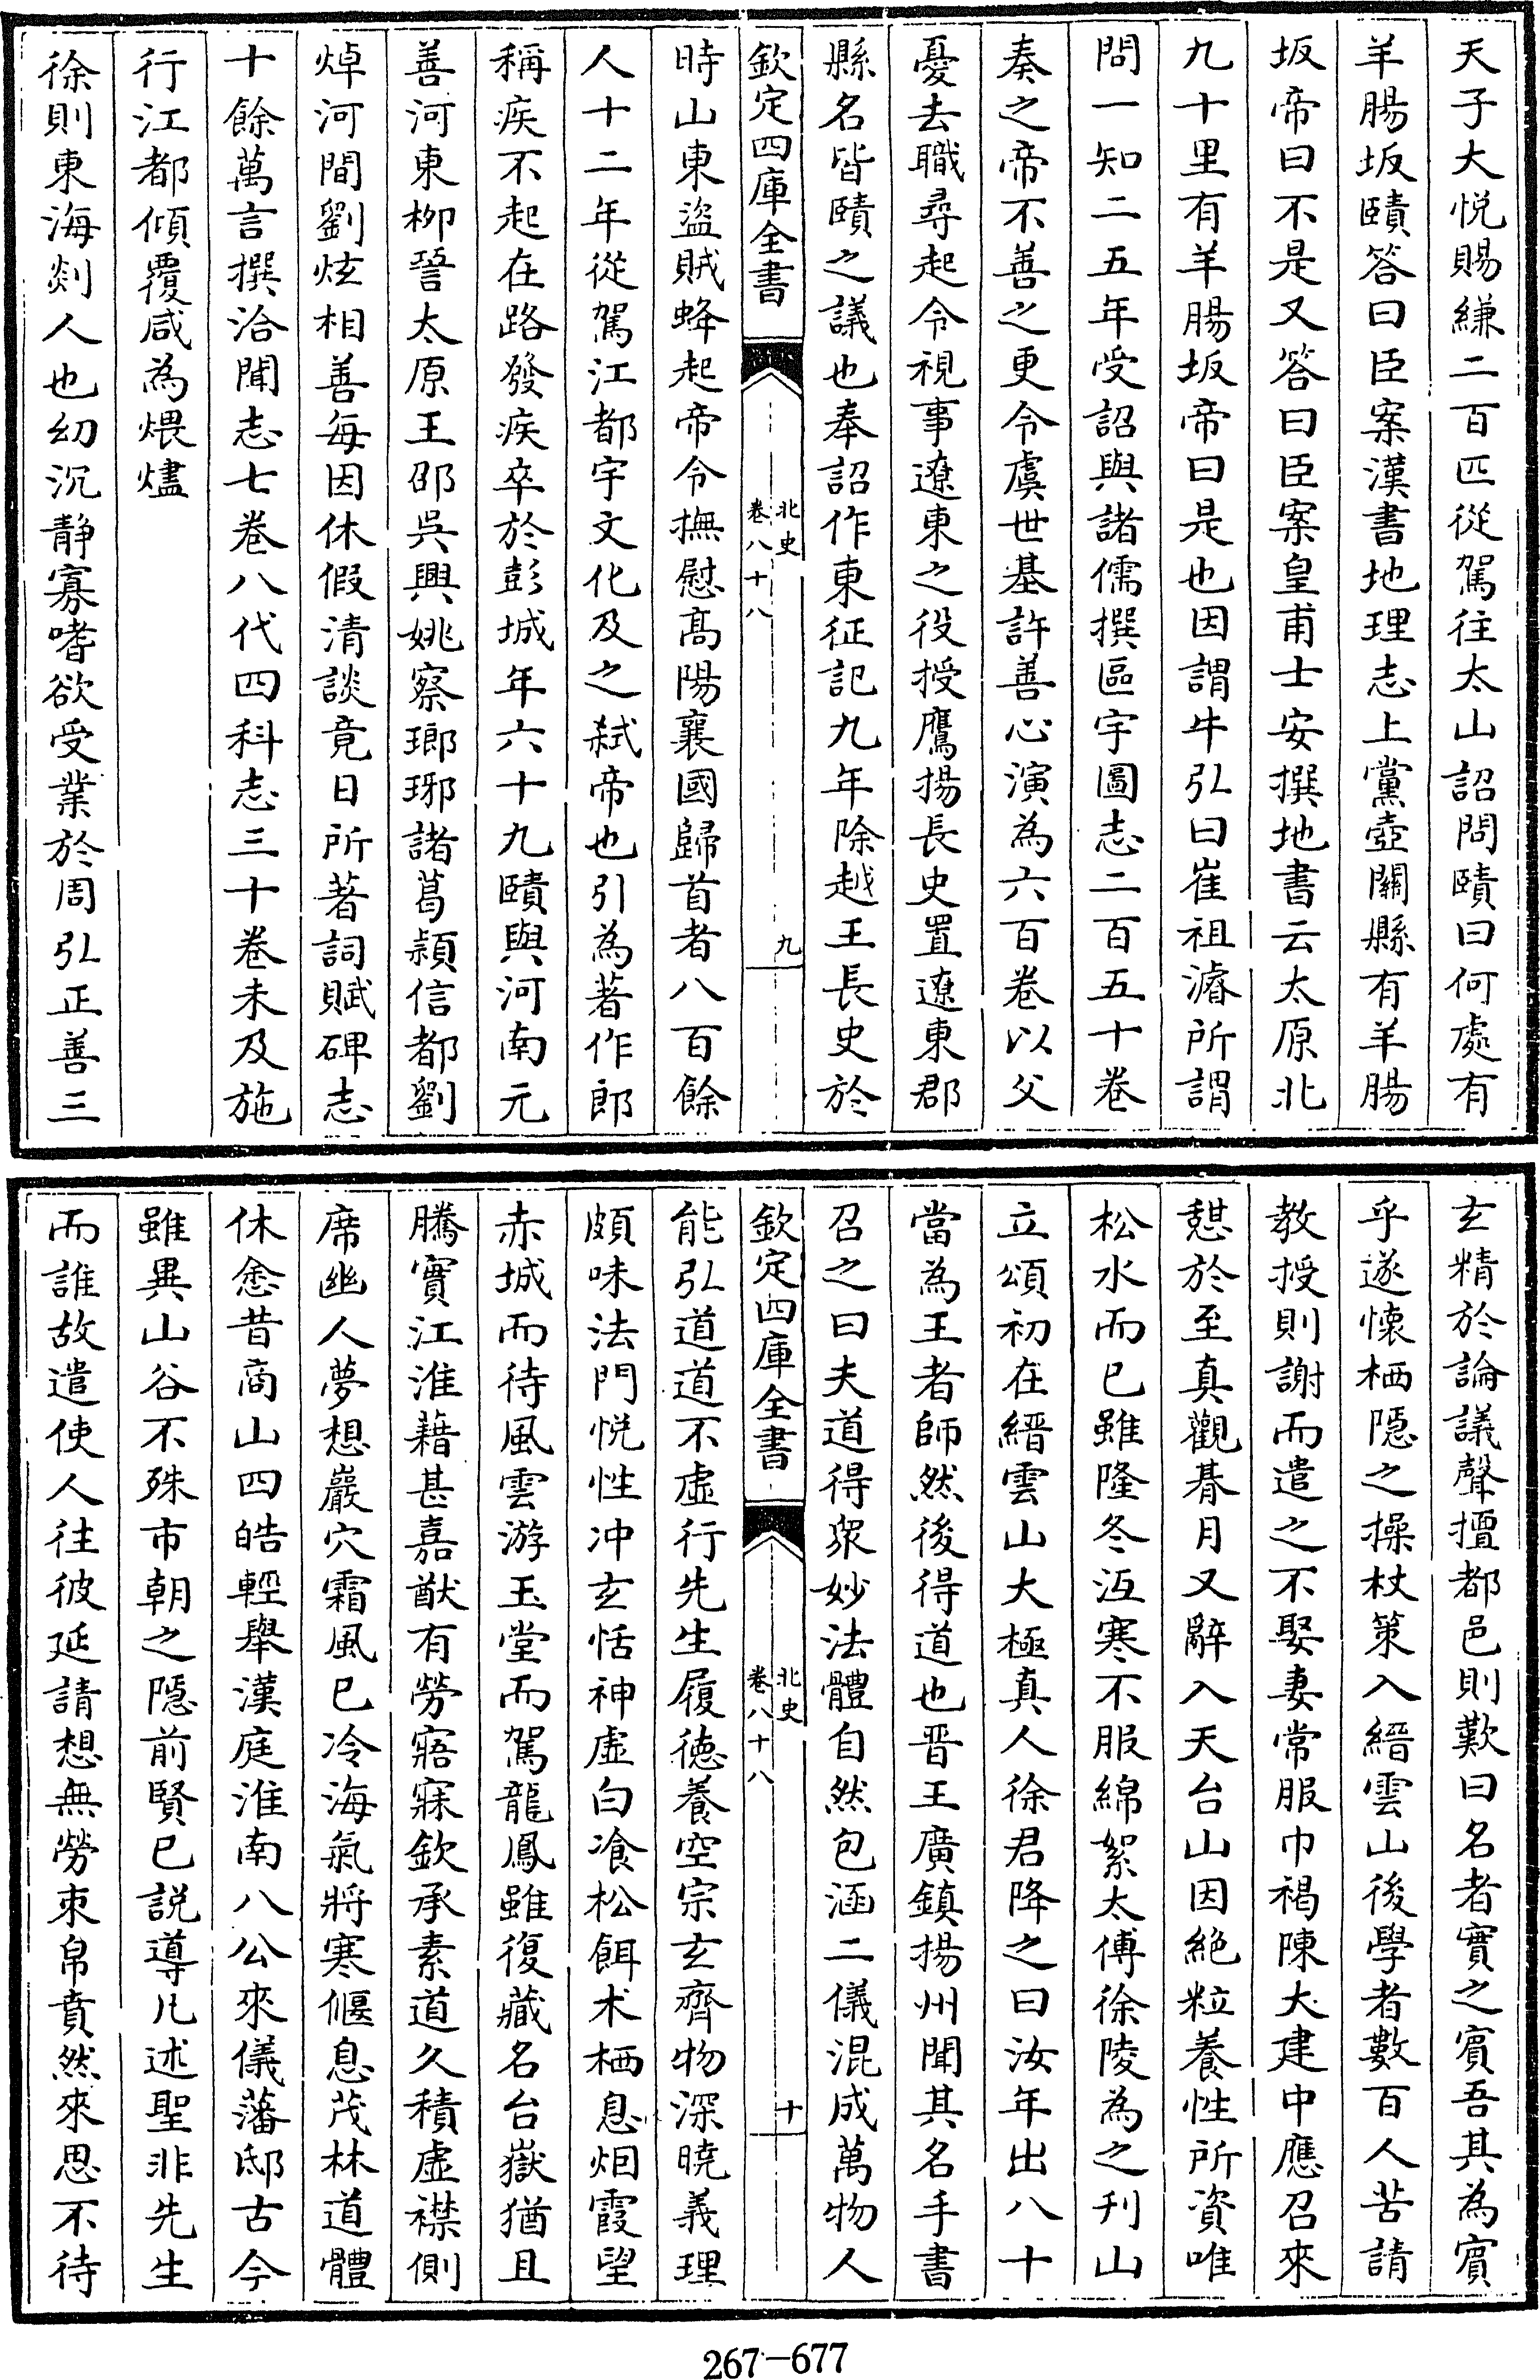 天子大悅賜縑二百匹從駕往太山詔問賾曰何處有
羊腸坂賾答曰臣案漢書地理志上黨壺關縣有羊腸
坂帝曰不是又答曰臣案皇甫士安撰地書云太原北
九十里有羊腸坂帝曰是也因謂牛弘曰崔祖濬所謂
問一知二五年受詔與諸儒撰區宇圖志二百五十卷
奏之帝不善之更令虞世基許善心演為六百卷以父
憂去職尋起令視事遼東之役授鷹揚長史置遼東郡
縣名皆賾之議也奉詔作東征記九年除越王長史於
欽定四庫全書
北史
卷八十八
九
時山東盜賊蜂起帝令撫慰高陽襄國歸首者八百餘
人十二年從駕江都宇文化及之弒帝也引為著作郎
稱疾不起在路發疾卒於彭城年六十九賾與河南元
善河東柳䛒太原王邵吳興姚察瑯琊諸葛潁信都劉
焯河間劉炫相善每因休假清談竟日所著詞賦碑志
十餘萬言撰洽聞志七卷八代四科志三十卷未及施
行江都傾覆咸為煨燼
徐則東海郯人也幼沉靜寡嗜欲受業於周弘正善三
玄精於論議聲擅都邑則歎曰名者實之賓吾其為賓
乎遂懷栖隱之操杖策入縉雲山後學者數百人苦請
教授則謝而遣之不娶妻常服巾褐陳大建中應召來
憇於至真觀朞月又辭入天台山因絕粒養性所資唯
松水而已雖隆冬沍寒不服綿絮太傅徐陵為之刊山
立頌初在縉雲山大極真人徐君降之曰汝年出八十
當為王者師然後得道也晉王廣鎮揚州聞其名手書
召之曰夫道得衆妙法體自然包涵二儀混成萬物人
欽定四庫全書
北史
卷八十八
十
能弘道道不虛行先生履德養空宗玄齊物深曉義理
頗味法門悅性冲玄恬神虛白飡松餌术栖息烟霞望
赤城而待風雲游玉堂而駕龍鳳雖復藏名台嶽猶且
騰實江淮藉甚嘉猷有勞寤寐欽承素道久積虛襟側
席幽人夢想巖穴霜風已冷海氣將寒偃息茂林道體
休悆昔商山四皓輕舉漢庭淮南八公來儀藩邸古今
雖異山谷不殊市朝之隱前賢已說導凡述聖非先生
而誰故遣使人往彼延請想無勞束帛賁然來思不待
267-677